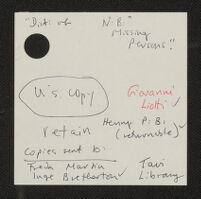 "Dist. of N.B."
"Missing Persons."
U.S. copy
Giovanni Liotti ✓
retain
Henry P. B. (returnable) ✓
Copies sent to:
Freda Martin
Inge Bretherton ✓
Tavi Library